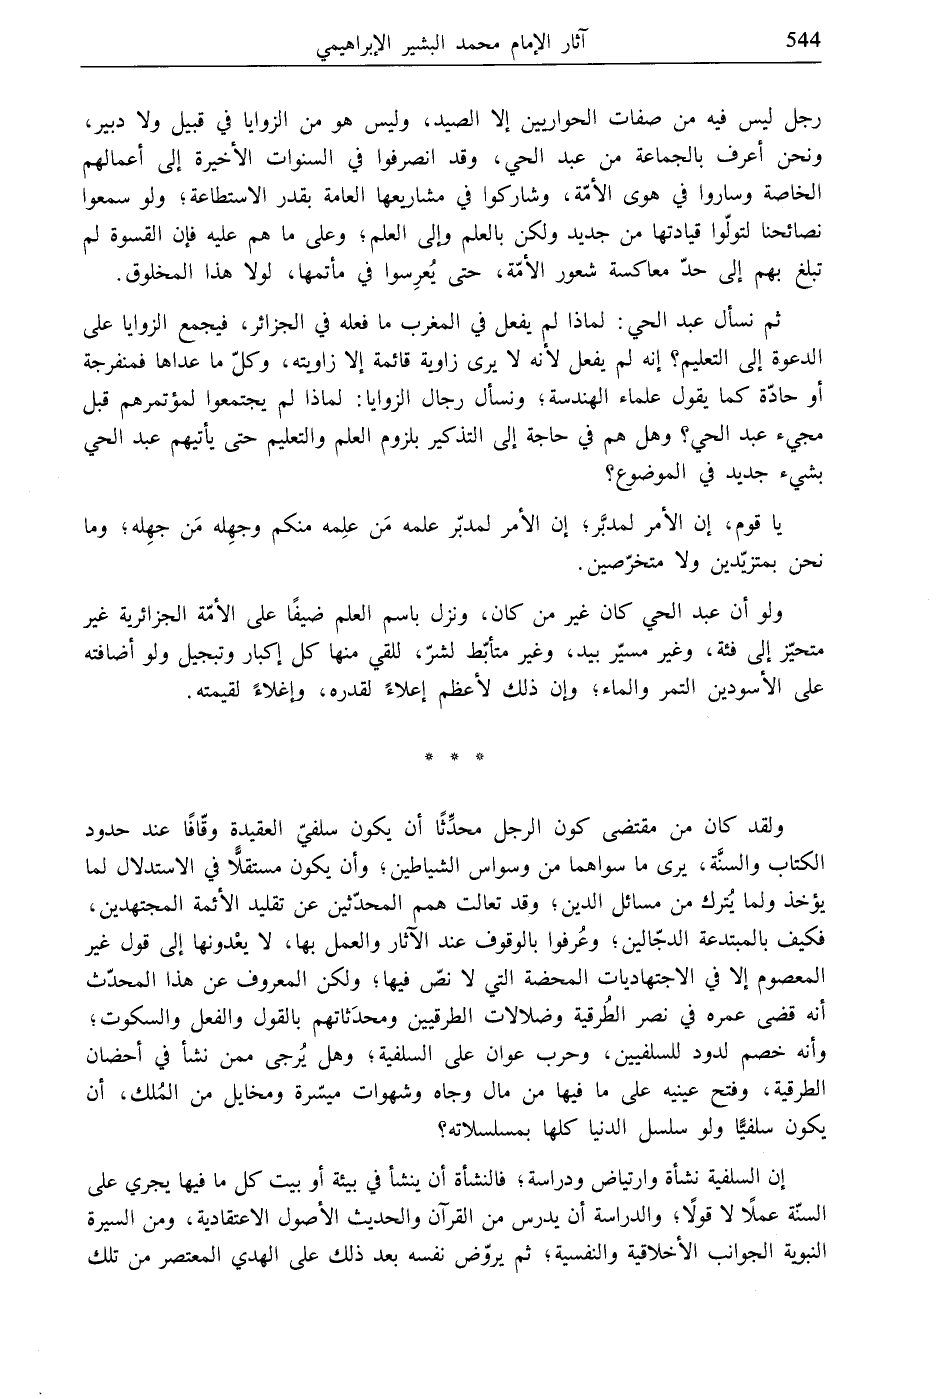 544
آثار الإمام محمد البشير الإبراهيمي
رجل ليس فيه من صفات الحواريين إلا الصيد، وليس هو من الزوايا في قبيل ولا دبير،
ونحن أعرف بالجماعة من عبد الحي، وقد انصرفوا في السنوات الأخيرة إلى أعمالهم
الخاصة وساروا في هوى الأمّة، وشاركوا في مشاريعها العامة بقدر الاستطاعة؛ ولو سمعوا
نصائحنا لتولّوا قيادتها من جديد ولكن بالعلم وإلى العلم؛ وعلى ما هم عليه فإن القسوة لم
تبلغ بهم إلى حدّ معاكسة شعور الأمّة، حتى يُعرِسوا في مأتمها، لولا هذا المخلوق.
ثم نسأل عبد الحي: لماذا لم يفعل في المغرب ما فعله في الجزائر، فيجمع الزوايا على
الدعوة إلى التعليم؟ إنه لم يفعل لأنه لا يرى زاوية قائمة إلا زاويته، وكلّ ما عداها فمنفرجة
أو حادّة كما يقول علماء الهندسة؛ ونسأل رجال الزوايا: لماذا لم يجتمعوا لمؤتمرهم قبل
مجيء عبد الحي؟ وهل هم في حاجة إلى التذكير بلزوم العلم والتعليم حتى يأتيهم عبد الحي
بشيء جديد في الموضوع؟
يا قوم، إن الأمر لمدبَّر؛ إن الأمر لمدبّر علمه مَن علِمه منكم وجهِله مَن جهِله؛ وما
نحن بمتزيّدين ولا متخرّصين.
ولو أن عبد الحي كان غير من كان، ونزل باسم العلم ضيفًا على الأمّة الجزائرية غير
متحيّز إلى فئة، وغير مسيّر بيد، وغير متأبّط لشرّ، للقي منها كل إكبار وتبجيل ولو أضافته
على الأسودين التمر والماء؛ وإن ذلك لأعظم إعلاءً لقدره، وإغلاءً لقيمته.
* * *
ولقد كان من مقتضى كون الرجل محدِّثًا أن يكون سلفيّ العقيدة وقّافًا عند حدود
الكتاب والسنَّة، يرى ما سواهما من وسواس الشياطين؛ وأن يكون مستقلًّا في الاستدلال لما
يؤخذ ولما يُترك من مسائل الدين؛ وقد تعالت همم المحدّثين عن تقليد الأئمة المجتهدين،
فكيف بالمبتدعة الدجّالين؛ وعُرفوا بالوقوف عند الآثار والعمل بها، لا يعْدونها إلى قول غير
المعصوم إلا في الاجتهاديات المحضة التي لا نصّ فيها؛ ولكن المعروف عن هذا المحدّث
أنه قضى عمره في نصر الطُرقية وضلالات الطرقيين ومحدَثاتهم بالقول والفعل والسكوت؛
وأنه خصم لدود للسلفيين، وحرب عوان على السلفية؛ وهل يُرجى ممن نشأ في أحضان
الطرقية، وفتح عينيه على ما فيها من مال وجاه وشهوات ميسّرة ومخايل من المُلك، أن
يكون سلفيًّا ولو سلسل الدنيا كلها بمسلسلاته؟
إن السلفية نشأة وارتياض ودراسة؛ فالنشأة أن ينشأ في بيئة أو بيت كل ما فيها يجري على
السنّة عملًا لا قولًا؛ والدراسة أن يدرس من القرآن والحديث الأصول الاعتقادية، ومن السيرة
النبوية الجوانب الأخلاقية والنفسية؛ ثم يروّض نفسه بعد ذلك على الهدي المعتصر من تلك